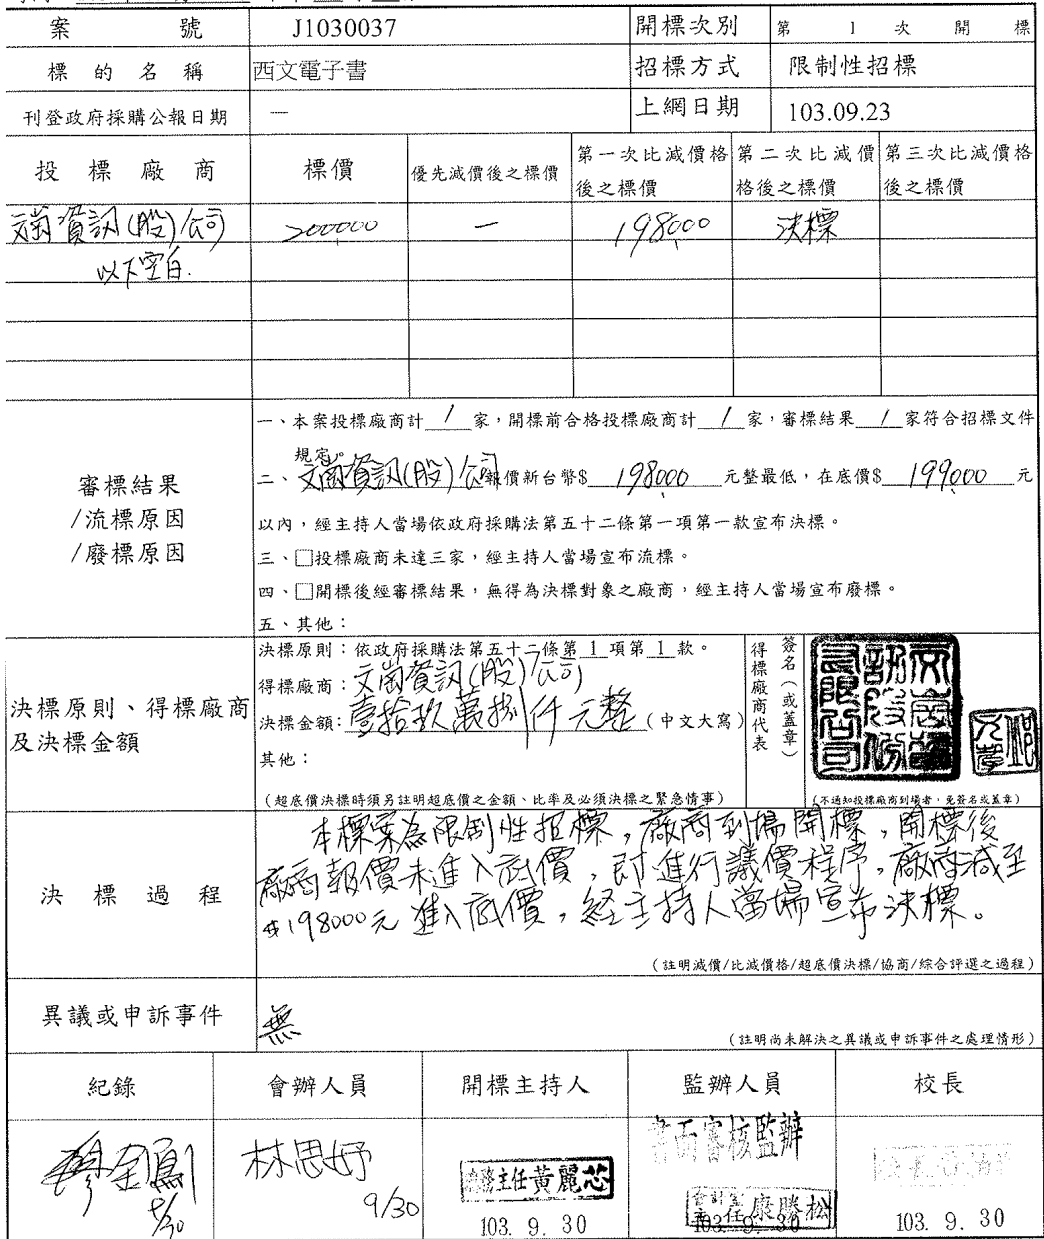 案 號 J1030037 開標次別 第 1 次 開 標
標 的 名 稱 西文電子書 招標方式 限制性招標
刊登政府採購公報日期 — 上網日期 103.09.23
投 標 廠 商 標價 優先減價後之標價 第一次比減價格後之標價 第二次比減價格後之標價 第三次比減價格後之標價
文崗資訊(股)公司 200000 — 198000 決標
以下空白.
審標結果
/流標原因
/廢標原因
一、本案投標廠商計 1 家,開標前合格投標廠商計 1 家,審標結果 1 家符合招標文件
規定。
二、文崗資訊(股)公司報價新台幣$ 198000 元整最低,在底價$ 199000 元
以內,經主持人當場依政府採購法第五十二條第一項第一款宣布決標。
三、□投標廠商未達三家,經主持人當場宣布流標。
四、□開標後經審標結果,無得為決標對象之廠商,經主持人當場宣布廢標。
五、其他:
決標原則、得標廠商
及決標金額
決標原則:依政府採購法第五十二條第 1 項第 1 款。
得標廠商:文崗資訊(股)公司
決標金額:壹拾玖萬捌仟元整(中文大寫)
其他:
(超底價決標時須另註明超底價之金額、比率及必須決標之緊急情事)
得標廠商代表
簽名(或蓋章)
(不通知投標廠商到場者,免簽名或蓋章)
決 標 過 程
本標案為限制性招標,廠商到場開標,開標後
廠商報價未進入底價,即進行議價程序,廠商減至
$198000元進入底價,經主持人當場宣布決標。
(註明減價/比減價格/超底價決標/協商/綜合評選之過程)
異議或申訴事件 無
(註明尚未解決之異議或申訴事件之處理情形)
紀錄 會辦人員 開標主持人 監辦人員 校長
書面審核監辦
廖金鳳 林思妤 主任黃麗芯 會計室主任康勝松
9/30 9/30 103. 9. 30 103. 9. 30 103. 9. 30